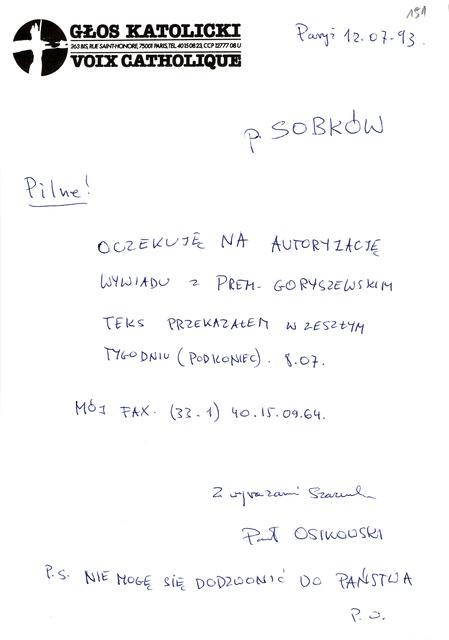 191
GŁOS KATOLICKI
263 BIS, RUE SAINT-HONORE, 75001 PARIS, TEL. 40 15 08 23, CCP 12777 08 U
VOIX CATHOLIQUE
Paryż 12.07.93.
p. SOBKÓW
Pilne!
OCZEKUJĘ NA AUTORYZACJĘ
WYWIADU Z PREM. GORYSZEWSKIM
TEKS PRZEKAZAŁEM W ZESZŁYM
TYGODNIU (POD KONIEC). 8.07.
MÓJ FAX. (33-1) 40.15.09.64.
Z wyrazami Szacunku
OSIKOWSKI
P.S. NIE MOGĘ SIĘ DODZWONIĆ DO PAŃSTWA
P.O.